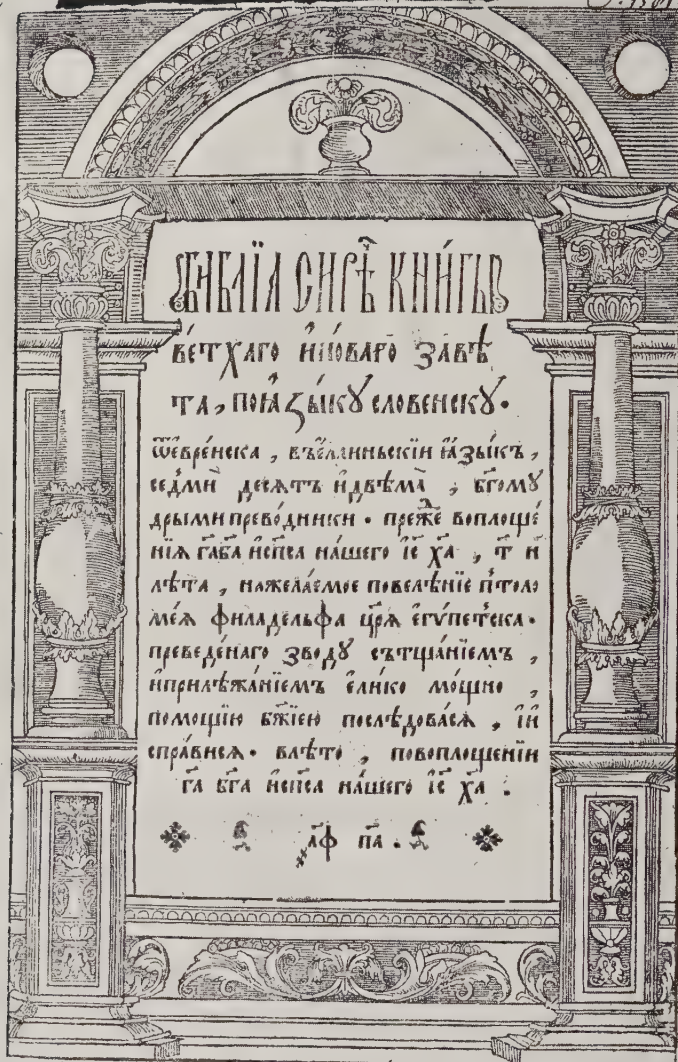 БИ́БЛЇѦ СИРѢ̑Ч КНИ́ГЫ
ВЕ́ТХАГО И҆НО́ВАГО ЗАВѢ
ТА, ПОꙖ҆ЗЫ́КУ СЛОВЕНСКУ.
ѿе҆вре́йска, въе҆ллиньскїи ꙗ҆зы́къ,
седми десѧтъ и҆двѣма̀, бг҃ому
дрыми преводники. пре́ж̾е воплоще́
нїѧ га҃ бг҃а и҆сп҃са на́шего і҆с҃ ха҃, т҃ и҃
лѣта, нажела́емое повелѣ́нїе птоло
ме́ѧ филаде́льфа цр҃ѧ е҆гѵ́петска.
преведе́наго зводу сътща́нїемъ,
и҆прилѣжа́нїемъ е҆ли́ко мо́щно,
помощїю бж҃їею послѣ́довасѧ, і҆ и҆
спра́висѧ. влѣ́то, повоплоще́нїи
га҃ бг҃а и҆сп҃са на́шего і҆с҃ ха҃.
҂а҃ф п҃а.